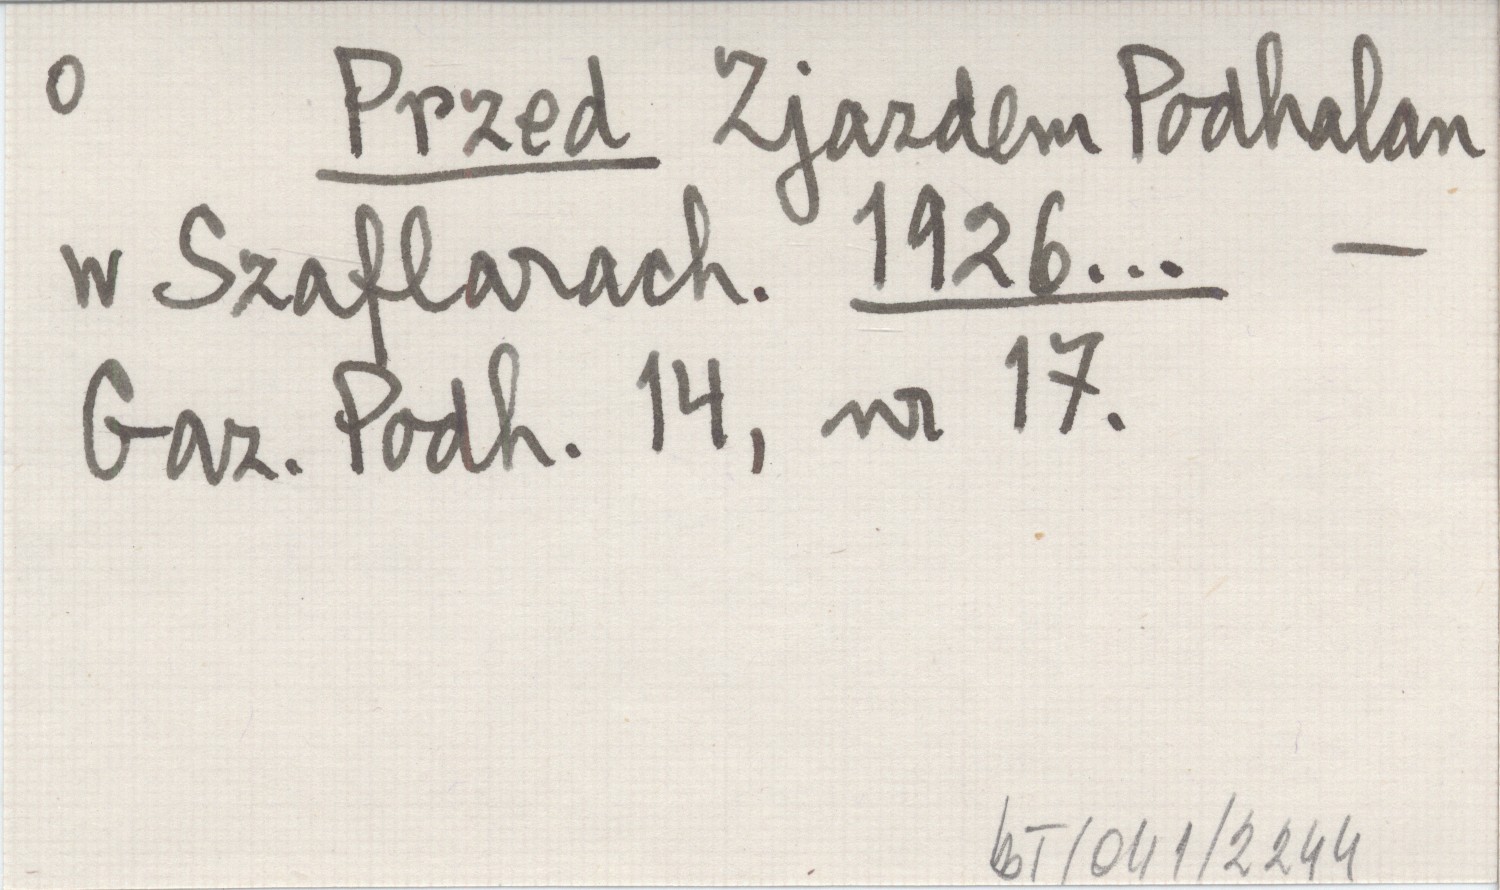 o Przed Zjazdem Podhalan
w Szaflarach. 1926... —
Gaz. Podh. 14, nr 17.
bT/041/2244